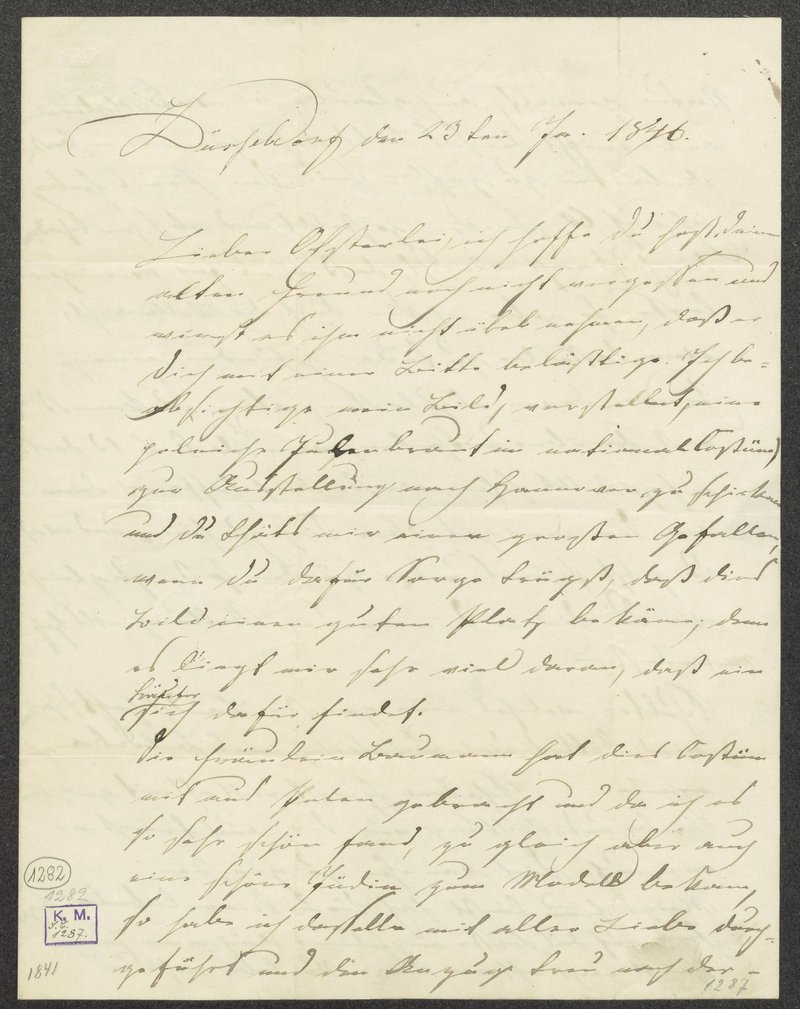 Düsseldorf den 23ten Ja. 1846.
Lieber Oesterlei, ich hoffe du hast deinen
alten Freund noch nicht vergessen und
wirst es ihm nicht übel nehmen, daß er
dich mit einer Bitte belästige. Ich be-
absichtige mein Bild, vorstellend, eine
polnische Judenbraut in national Costüm,
zur Ausstellung nach Hannover zu schicken
und du thäts mir einen grosten Gefallen,
wenn du dafür Sorge trügst, daß dies
Bild einen guten Platz bekäme; denn
es liegt mir sehr viel daran, daß ein
Käufer
sich dafür findet.
Die Fräulein Baumann hat dies Costüm
mit aus Polen gebracht und da ich es
so sehr schön fand, zu gleich aber auch
eine schöne Jüdin zum Modell bekam,
so habe ich dasselbe mit aller Liebe durch-
geführt und den Anzug treu nach der-
1282
1282
K. M.
1287.
1841
1287